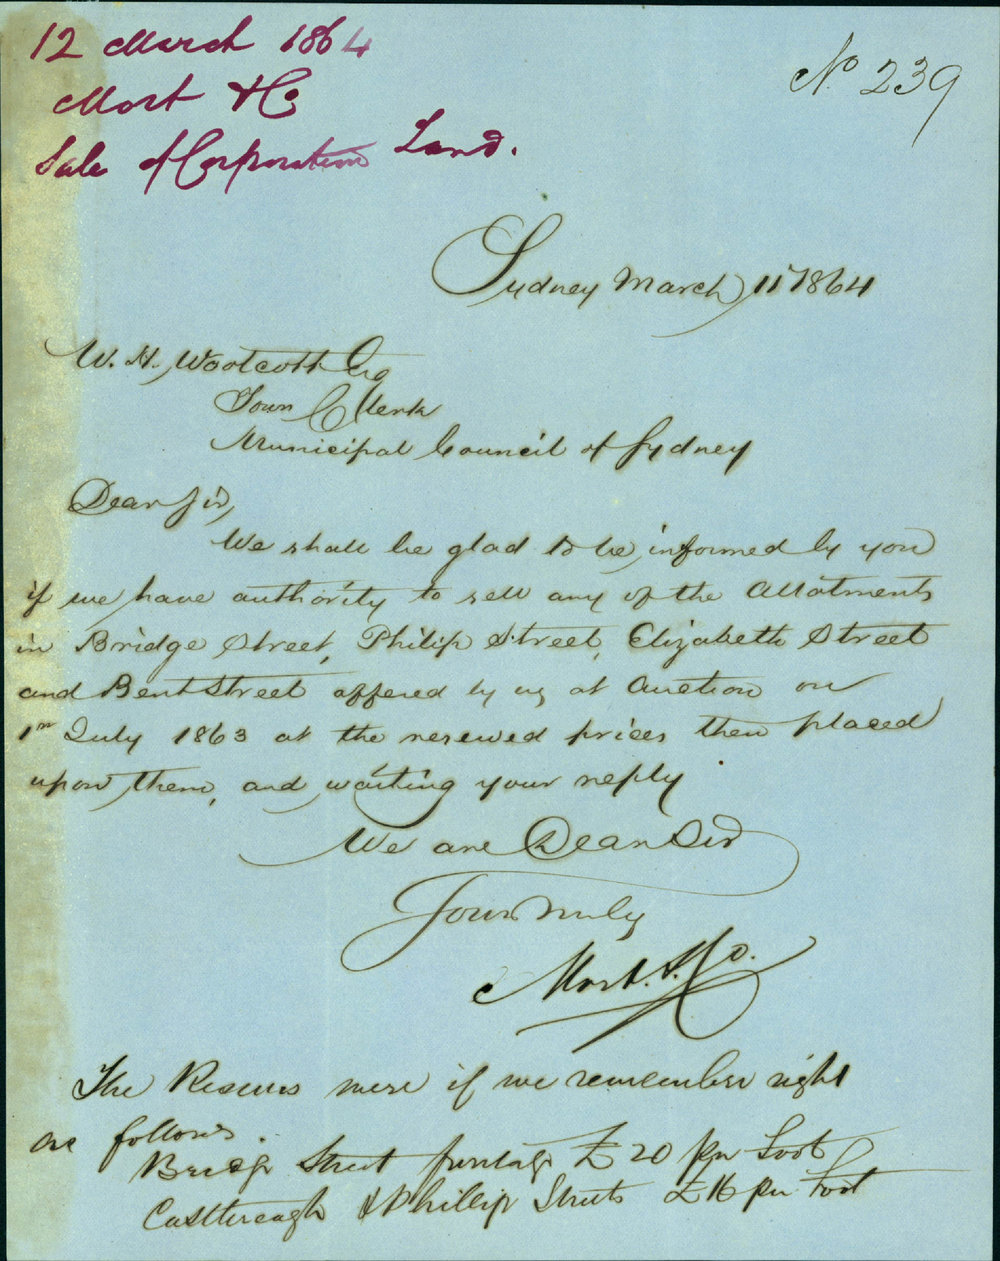 12 March 1864
Mort & Co
Sale of Corporation Land.
No 239
Sydney March 11 1864
W. H. Woolcott Esq
Town Clerk
Municipal Council of Sydney
Dear Sir,
We shall be glad to be informed by you
if we have authority to sell any of the Allotments
in Bridge Street, Philip Street, Elizabeth Street
and Bent Street offered by us at Auction on
1st July 1863 at the reserved prices then placed
upon them, and waiting your reply
We are Dear Sir
Yours truly
Mort. & Co.
The Reserves were if we remember right
as follows.
Bridge Street frontage £20 per foot
Castlereagh & Phillip Streets £16 per foot